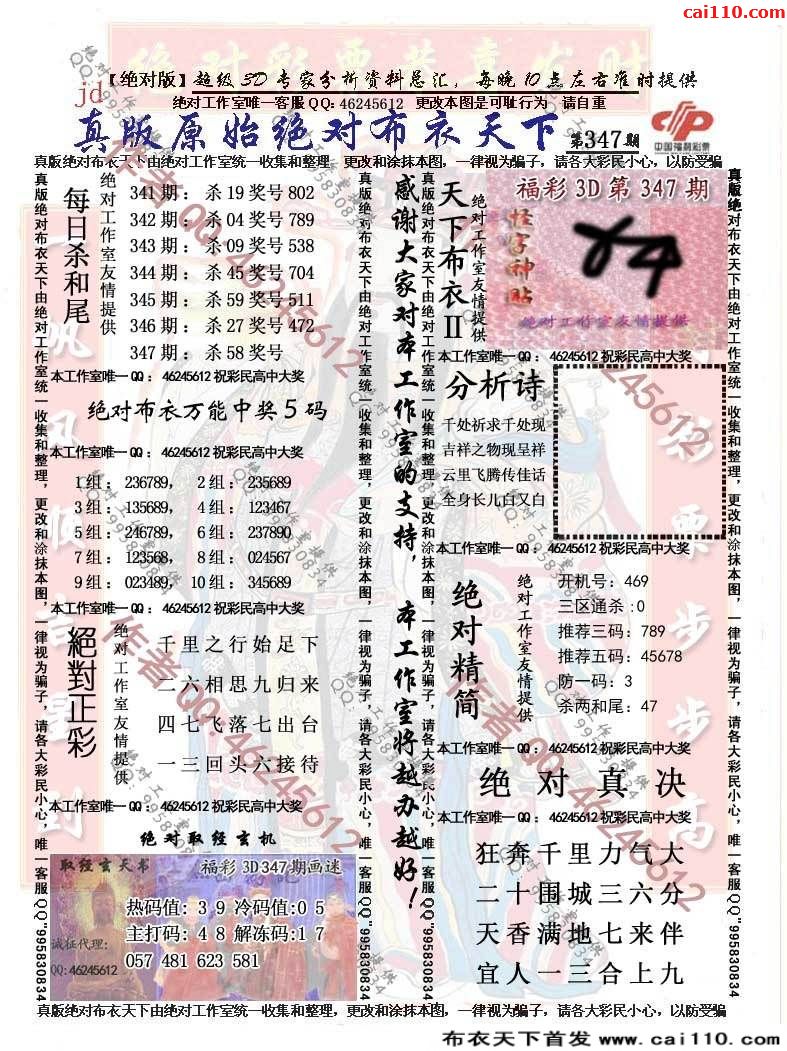 cai110.com
绝对彩票共享发财
【绝对版】超级3D专家分析资料总汇，每晚10点左右准时提供
jd
绝对工作室唯一客服QQ：46245612 更改本图是可耻行为 请自重
真版原始绝对布衣天下 第347期
中国福利彩票
真版绝对布衣天下由绝对工作室统一收集和整理，更改和涂抹本图，一律视为骗子，请各大彩民小心，以防受骗
真版绝对布衣天下由绝对工作室统一收集和整理，更改和涂抹本图，一律视为骗子，请各大彩民小心，唯一客服QQ"995830834
每日杀和尾
绝对工作室友情提供
341期：杀19奖号802
342期：杀04奖号789
343期：杀09奖号538
344期：杀45奖号704
345期：杀59奖号511
346期：杀27奖号472
347期：杀58奖号
本工作室唯一QQ：46245612祝彩民高中大奖
绝对布衣万能中奖5码
本工作室唯一QQ：46245612祝彩民高中大奖
1组：236789， 2组：235689
3组：135689， 4组：123467
5组：246789， 6组：237890
7组：123568， 8组：024567
9组：023489， 10组：345689
本工作室唯一QQ：46245612祝彩民高中大奖
絕對正彩
绝对工作室友情提供
千里之行始足下
二六相思九归来
四七飞落七出台
一三回头六接待
本工作室唯一QQ：46245612祝彩民高中大奖
绝对取经玄机
取经玄天书
福彩3D347期画迷
热码值：39冷码值:05
主打码：48解冻码:17
057 481 623 581
诚征代理：
QQ:46245612
真版绝对布衣天下由绝对工作室统一收集和整理，更改和涂抹本图，一律视为骗子，请各大彩民小心，唯一客服QQ"995830834
感谢大家对本工作室的支持，本工作室将越办越好！
真版绝对布衣天下由绝对工作室统一收集和整理，更改和涂抹本图，一律视为骗子，请各大彩民小心，唯一客服QQ"995830834
天下布衣II
绝对工作室友情提供
福彩3D第347期
怪字神贴
绝对工作室友情提供
本工作室唯一QQ：46245612祝彩民高中大奖
分析诗
千处祈求千处现
吉祥之物现呈祥
云里飞腾传佳话
全身长儿白又白
本工作室唯一QQ：46245612祝彩民高中大奖
绝对精简
绝对工作室友情提供
开机号：469
三区通杀:0
推荐三码：789
推荐五码：45678
防一码：3
杀两和尾：47
本工作室唯一QQ：46245612祝彩民高中大奖
绝对真决
本工作室唯一QQ：46245612祝彩民高中大奖
狂奔千里力气大
二十围城三六分
天香满地七来伴
宜人一三合上九
真版绝对布衣天下由绝对工作室统一收集和整理，更改和涂抹本图，一律视为骗子，请各大彩民小心，唯一客服QQ"995830834
真版绝对布衣天下由绝对工作室统一收集和整理，更改和涂抹本图，一律视为骗子，请各大彩民小心，以防受骗
布衣天下首发 www.cai110.com